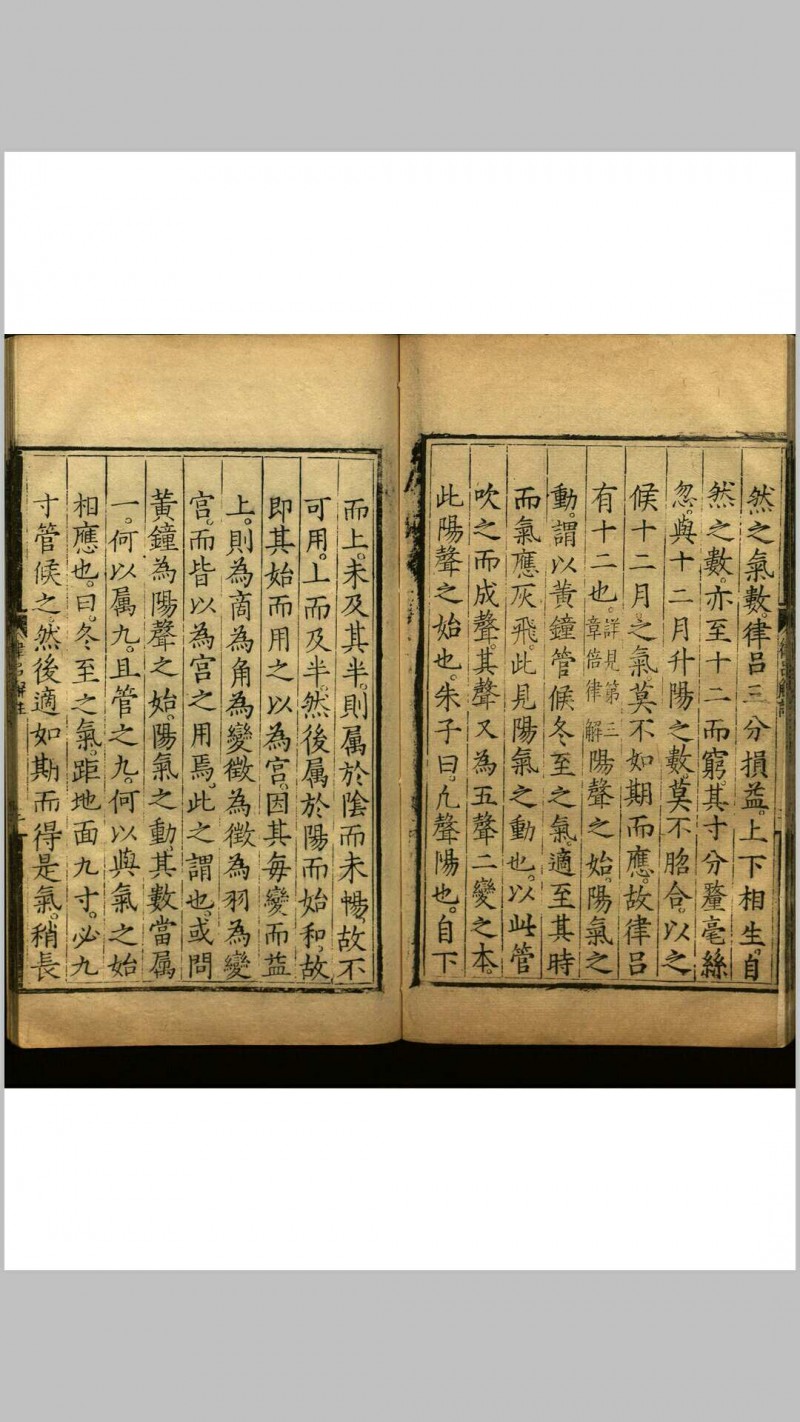 然之氣數律呂三分損益。上下相生。自
然之數。亦至十二而窮。其寸分釐毫絲
忽。與十二月升陽之數莫不脗合。以之
候十二月之氣。莫不如期而應。故律呂
有十二也。詳見第三章倍律解陽聲之始。陽氣之
動。謂以黃鐘管候冬至之氣。適至其時
而氣應灰飛。此見陽氣之動也。以此管
吹之而成聲。其聲又為五聲二變之本。
此陽聲之始也。朱子曰。凡聲陽也。自下
而上。未及其半。則属於陰而未暢。故不
可用。上而及半。然後属於陽而始和。故
即其始而用之以為宮。因其每變而益
上。則為商為角為變徵為徵為羽為變
宮。而皆以為宮之用焉。此之謂也。或問
黃鐘為陽聲之始。陽氣之動。其數當属
一。何以属九。且管之九。何以與氣之始
相應也。曰。冬至之氣。距地面九寸。必九
寸管候之。然後適如期而得是氣。稍長
律呂解註